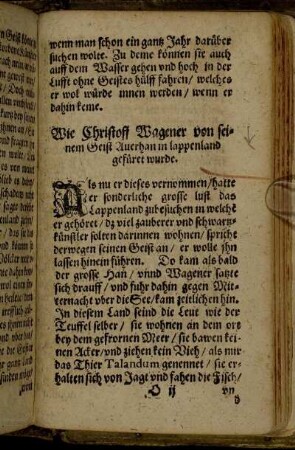 wenn man schon ein gantz Jahr darüber
suchen wolte. Zu deme können sie auch
auff dem Wasser gehen vnd hoch in der
Lufft ohne Geistes hülff fahren/ welches
er wol würde innen werden/ wenn er
dahin keme.
Wie Christoff Wagener von sei-
nem Geist Auerhan in lappenland
gefüret wurde.
Als nu er dieses vernommen/ hatte
er sonderliche grosse lust das
Lappenland zubesuchen in welchẽ
er gehöret/ dz viel zauberer vnd schwartz
künstler solten darinnen wohnen/ spricht
derwegen seinen Geist an/ er wolle jhn
lassen hinein führen. Do kam als bald
der grosse Han/ vnnd Wagener satzte
sich drauff/ vnd fuhr dahin gegen Mit-
ternacht vber die See/ kam zeitlichen hin.
In diesem Land seind die Leut wie der
Teuffel selber/ sie wohnen an dem ort
bey dem gefrornen Meer/ sie bawen kei-
nen Acker/ vnd ziehen kein Vieh/ als nur
das Thier Talandum genennet/ sie er-
halten sich von Jagt vnd fahen die Fisch/
O ij
vn